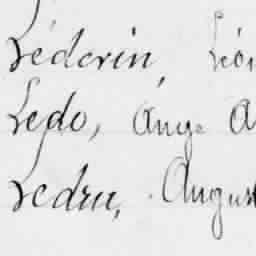 Léderin, Léon
Ledo, Ange A
Ledru, August